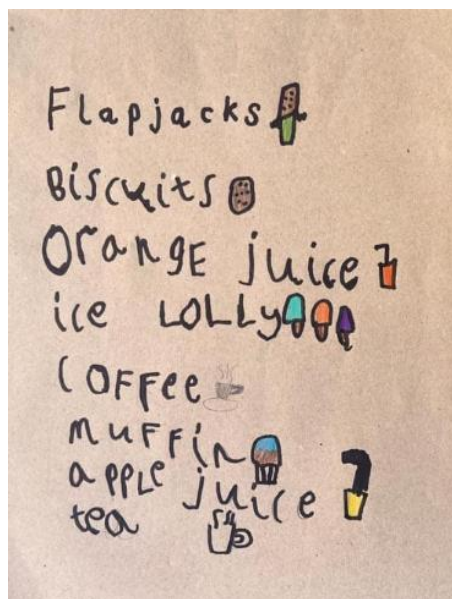 Flapjacks
Biscuits
OrangE juice
ice LOLLy
COFFee
muFFin
appLe juice
tea